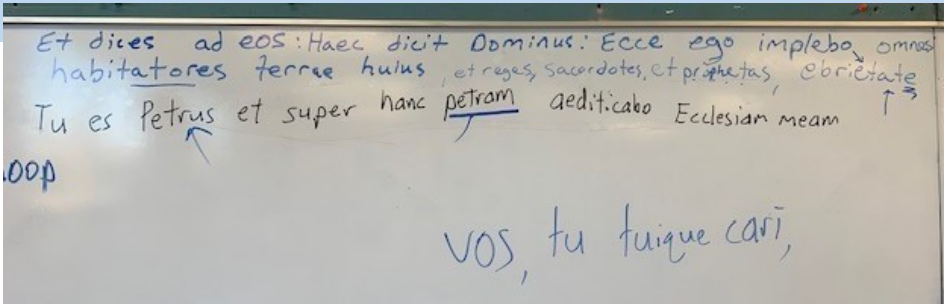 Et dices ad eos: Haec dicit Dominus: Ecce ego implebo omnes
habitatores terrae huius, et reges, sacerdotes, et prophetas, ebrietate
Tu es Petrus et super hanc petram aediticabo Ecclesiam meam
oop
vos, tu tuique cari,